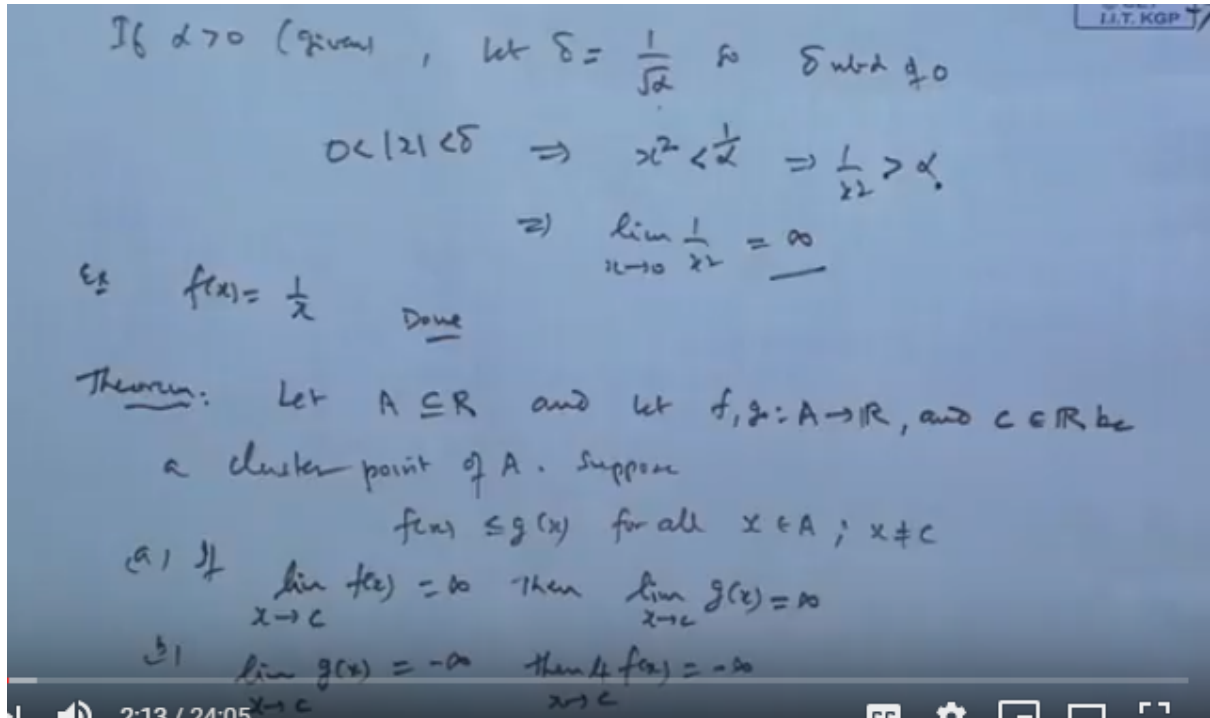 I.I.T. KGP
If α>0 (given) , let δ = 1/√α so δ nbd of 0
0<|x|<δ ⇒ x² < 1/α ⇒ 1/x² > α.
⇒ lim x→0 1/x² = ∞
Ex f(x) = 1/x Done
Theorem: Let A ⊆ R and let f, g : A → R, and c ∈ R be
a cluster point of A. Suppose
f(x) ≤ g(x) for all x ∈ A ; x ≠ c
(a) If lim x→c f(x) = ∞ Then lim x→c g(x) = ∞
lim x→c g(x) = -∞ then lt x→c f(x) = -∞
2:13 / 24:05
CC